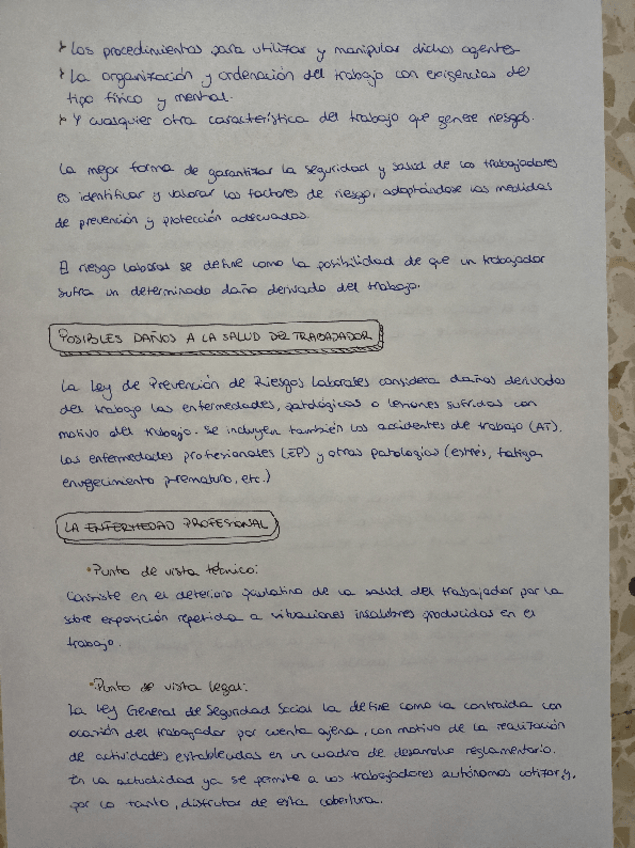 * Los procedimientos para utilizar y manipular dichos agentes
* La organización y ordenación del trabajo con exigencias de
tipo físico y mental.
* Y cualquier otra característica del trabajo que genere riesgos.
La mejor forma de garantizar la seguridad y salud de los trabajadores
es identificar y valorar los factores de riesgo, adoptándose las medidas
de prevención y protección adecuadas.
El riesgo laboral se define como la posibilidad de que un trabajador
sufra un determinado daño derivado del trabajo.
POSIBLES DAÑOS A LA SALUD DEL TRABAJADOR
La Ley de Prevención de Riesgos Laborales considera daños derivados
del trabajo las enfermedades, patológicas o lesiones sufridas con
motivo del trabajo. Se incluyen también los accidentes de trabajo (AT),
las enfermedades profesionales (EP) y otras patologías (estrés, fatiga,
envejecimiento prematuro, etc.)
LA ENFERMEDAD PROFESIONAL
• Punto de vista técnico:
Consiste en el deterioro paulatino de la salud del trabajador por la
sobre exposición repetida a situaciones insalubres producidas en el
trabajo.
• Punto de vista legal:
La Ley General de Seguridad Social la define como la contraída con
ocasión del trabajador por cuenta ajena, con motivo de la realización
de actividades establecidas en un cuadro de desarrollo reglamentario.
En la actualidad ya se permite a los trabajadores autónomos cotizar y,
por lo tanto, disfrutar de esta cobertura.